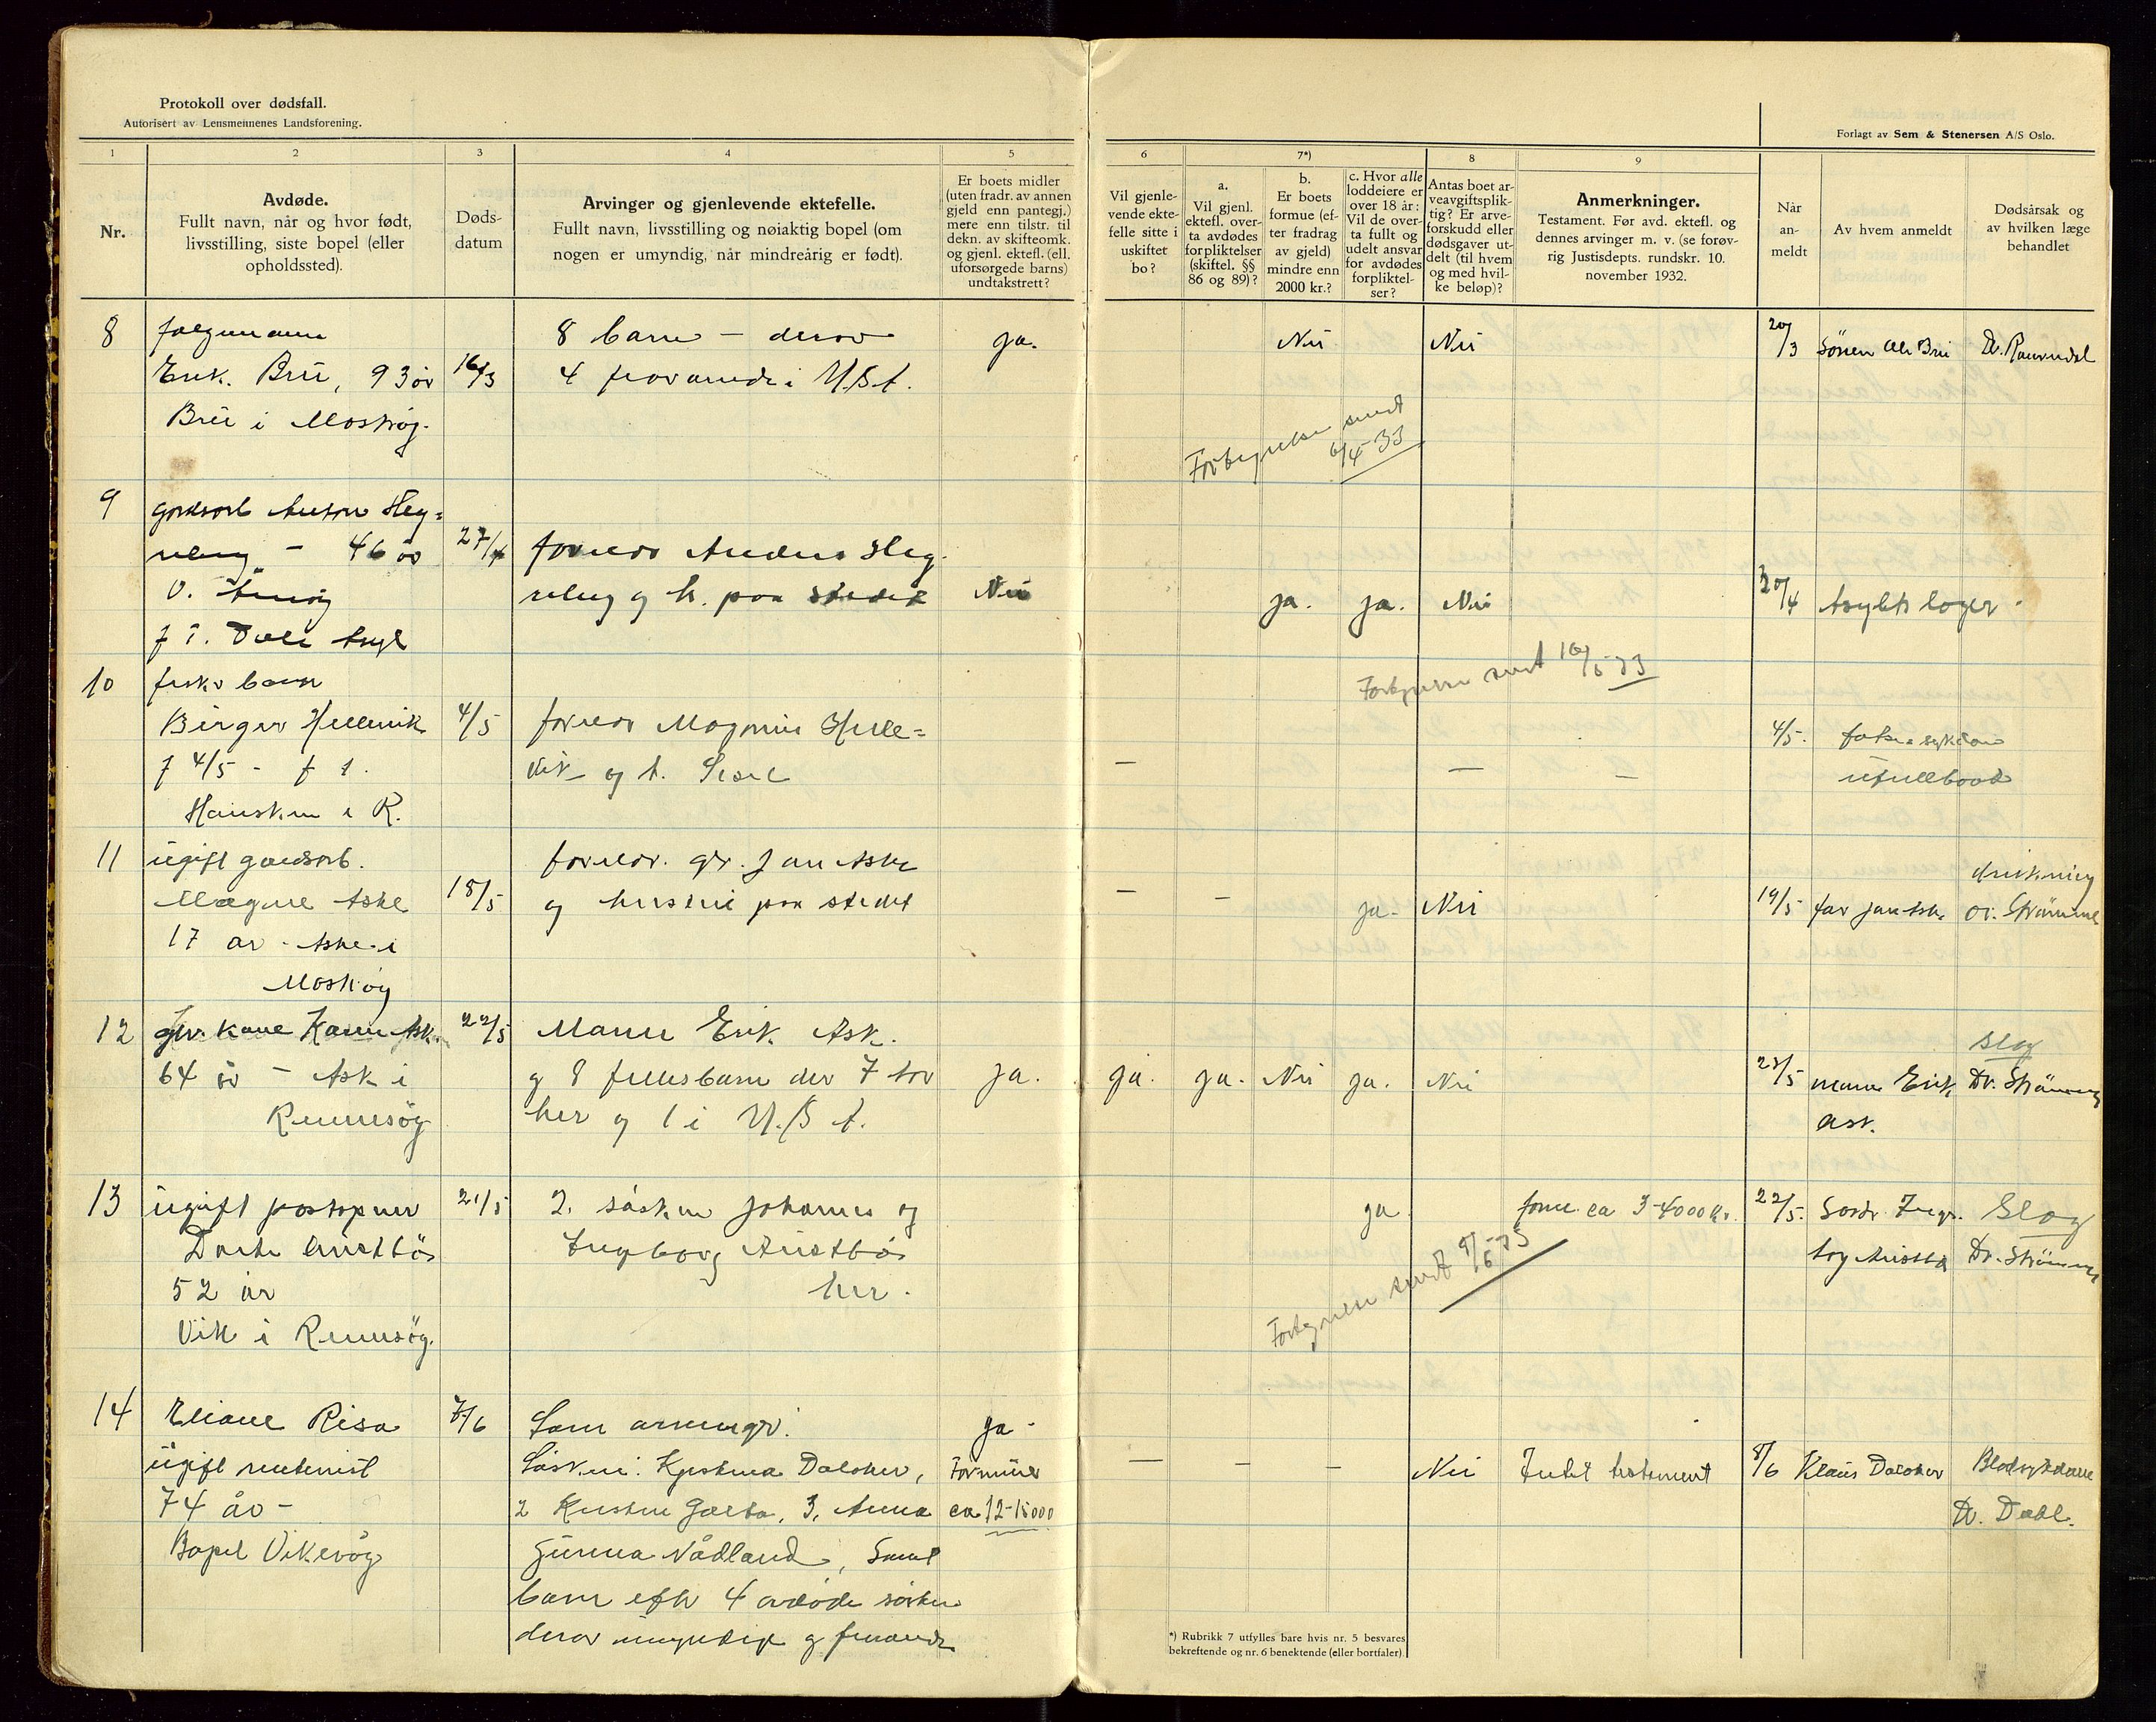 Protokoll over dødsfall.
Autorisert av Lensmennenes Landsforening.
Forlagt av Sem & Stenersen A/S Oslo.
1
2
3
4
5
6
7*)
8
9
Nr.
Avdøde.
Fullt navn, når og hvor født,
livsstilling, siste bopel (eller
opholdssted).
Døds-
datum
Arvinger og gjenlevende ektefelle.
Fullt navn, livsstilling og nøiaktig bopel (om
nogen er umyndig, når mindreårig er født).
Er boets midler
(uten fradr. av annen
gjeld enn pantegj.)
mere enn tilstr. til
dekn. av skifteomk.
og gjenl. ektefl. (ell.
uforsørgede barns)
undtakstrett?
Vil gjenle-
vende ekte-
felle sitte i
uskiftet
bo?
a.
Vil gjenl.
ektefl. over-
ta avdødes
forpliktelser
(skiftel. §§
86 og 89)?
b.
Er boets
formue (ef-
ter fradrag
av gjeld)
mindre enn
2000 kr.?
c. Hvor alle
loddeiere er
over 18 år:
Vil de over-
ta fullt og
udelt ansvar
for avdødes
forpliktel-
ser?
Antas boet ar-
veavgiftsplik-
tig? Er arve-
forskudd eller
dødsgaver ut-
delt (til hvem
og med hvil-
ke beløp)?
Anmerkninger.
Testament. Før avd. ektefl. og
dennes arvinger m. v. (se forøv-
rig Justisdepts. rundskr. 10.
november 1932.
Når
an-
meldt
Av hvem anmeldt
Dødsårsak og
av hvilken læge
behandlet
8
Erik Brü, 93 år
Brü i Mosterøy.
16/3
8 barn – derav
4 fraværende i U.S.A.
ja.
Nei
Nei
20/3
Sönen Ole Brü
Fortegnelse sendt
6/4-33
9
gardsarb Anton Heg-
46 år
27/4
foreldr Anders Heg-
og h. paa stedet
Nei
ja.
ja.
Nei
30/4
Asylets læger
Fortegnelse sendt 16/5-33
10
fisker barn
Birger Hellevik
f 4/5 -
Hausken i R.
4/5
foreldr Magnus Helle-
vik og h.
–
–
–
4/5.
11
ugift gardsarb.
Magne Aske
17 år - Aske i
Mosterøy
18/5
foreldr. gbr. Jan Aske
og hustru paa stedet
–
–
ja.
Nei
19/5
far Jan Aske
drukning
Dr. Strömme
12
gbr. kone Karen Ask
64 år – Ask i
Rennesøy
22/5
Mann Erik Ask.
og 8 fellesbarn der 7 bor
her og 1 i U.S.A.
ja.
ja.
ja.
Nei
ja.
Nei
23/5
mann Erik
Ask.
Slag
Dr. Strömme
13
ugift postopner
Dorte Austbö
52 år
Vik i Rennesøy.
21/5
2. søsken Johannes og
Ingeborg Austbö
her.
ja
form. ca 3-4000 kr.
22/5.
Slag
Dr. Strömme
Fortegnelse sendt 8/6-33
14
Eliane Risa
ugift rentenist
74 år –
Bopel Vikevåg
7/6
Som arvinger:
Søsken: Kjestina Dalaker,
2 Kirsten Galta, 3, Anna
Gurina Nådland, Samt
barn efter 4 avdøde søsken
derav umyndige og fraværende
ja -
Formue
ca 12-15000
–
–
–
Nei
Intet testament
8/6
Klaus Dalaker
Dr. Dahl.
*) Rubrikk 7 utfylles bare hvis nr. 5 besvares
bekreftende og nr. 6 benektende (eller bortfaler)